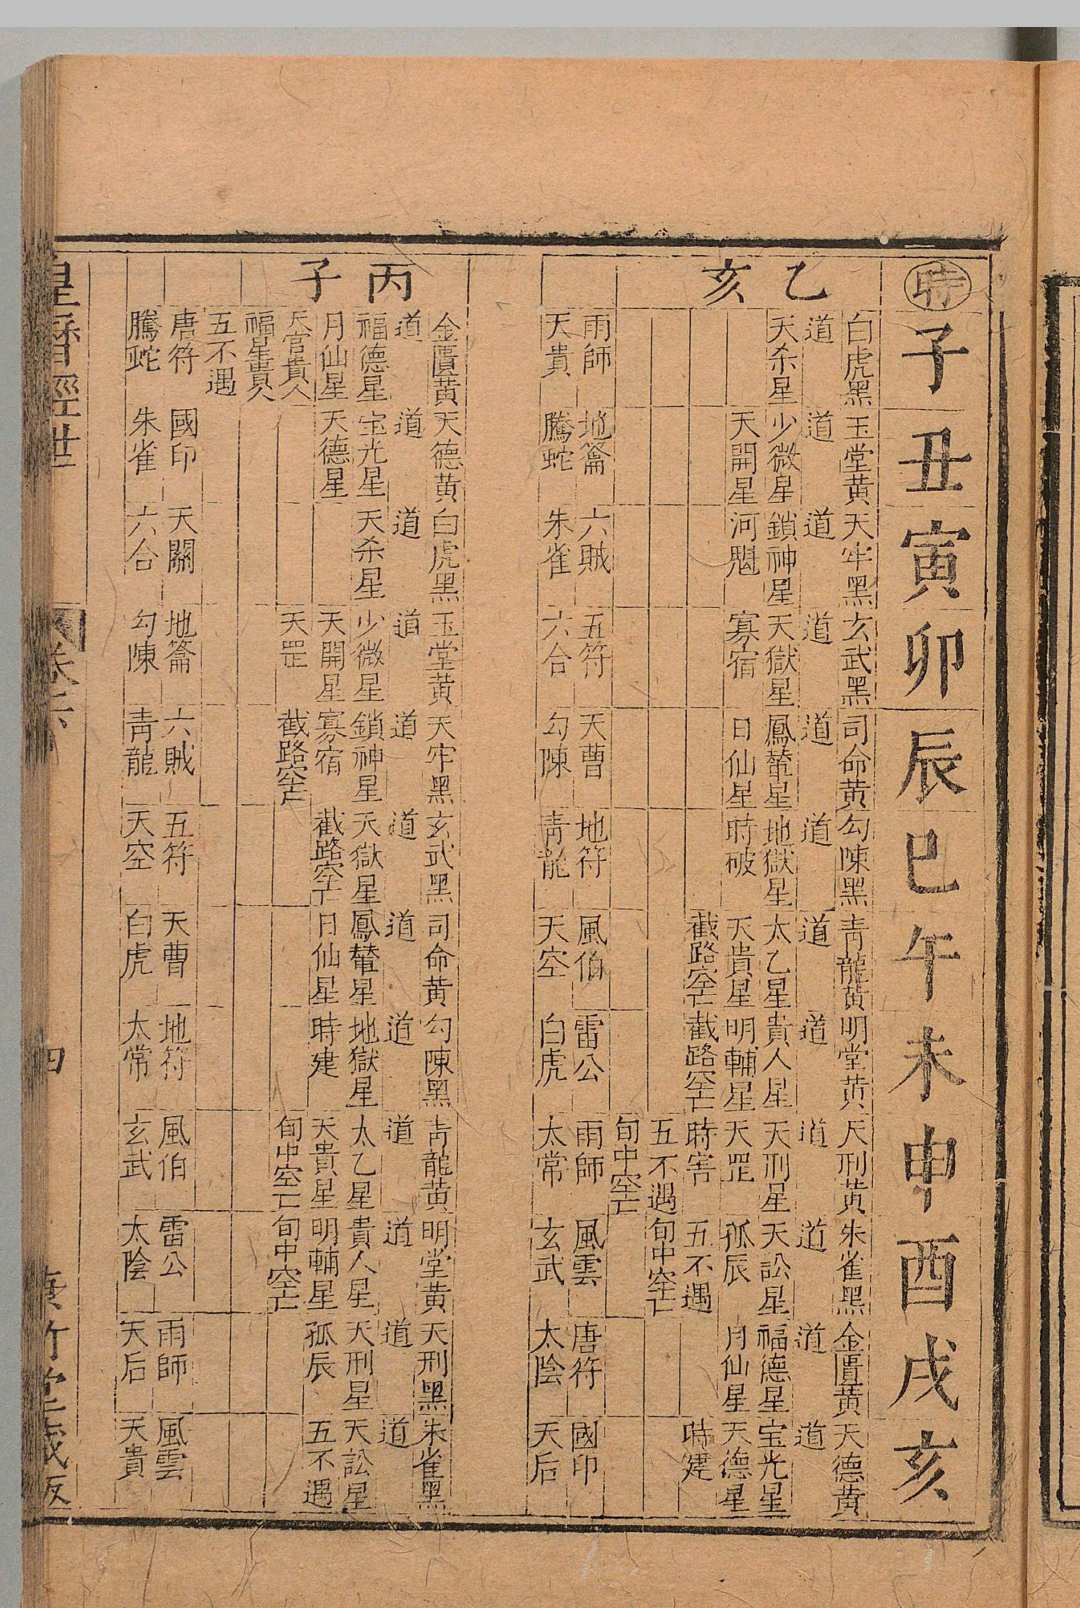 時 子 丑 寅 卯 辰 巳 午 未 申 酉 戌 亥
乙亥
白虎黑 玉堂黃 天牢黑 玄武黑 司命黃 勾陳黑 青龍黃 明堂黃 天刑黃 朱雀黑 金匱黃 天德黃
道 道 道 道 道 道 道 道 道 道 道 道
天杀星 少微星 鎖神星 天獄星 鳳輦星 地獄星 太乙星 貴人星 天刑星 天訟星 福德星 宝光星
天開星 河魁 寡宿 日仙星 時破 天貴星 明輔星 天罡 孤辰 月仙星 天德星
截路空亡 截路空亡 時害 五不遇 時建
五不遇 旬中空亡
旬中空亡
雨師 地籥 六賊 五符 天曹 地符 風伯 雷公 雨師 風雲 唐符 國印
天貴 騰蛇 朱雀 六合 勾陳 青龍 天空 白虎 太常 玄武 太陰 天后
丙子
金匱黃 天德黃 白虎黑 玉堂黃 天牢黑 玄武黑 司命黃 勾陳黑 青龍黃 明堂黃 天刑黑 朱雀黑
道 道 道 道 道 道 道 道 道 道 道 道
福德星 宝光星 天杀星 少微星 鎖神星 天獄星 鳳輦星 地獄星 太乙星 貴人星 天刑星 天訟星
月仙星 天德星 天開星 寡宿 截路空亡 日仙星 時建 天貴星 明輔星 孤辰 五不遇
天官貴人 天罡 截路空亡 旬中空亡 旬中空亡
福星貴人
五不遇
唐符 國印 天關 地籥 六賊 五符 天曹 地符 風伯 雷公 雨師 風雲
騰蛇 朱雀 六合 勾陳 青龍 天空 白虎 太常 玄武 太陰 天后 天貴
皇曆經世 卷六 四 竹堂藏版